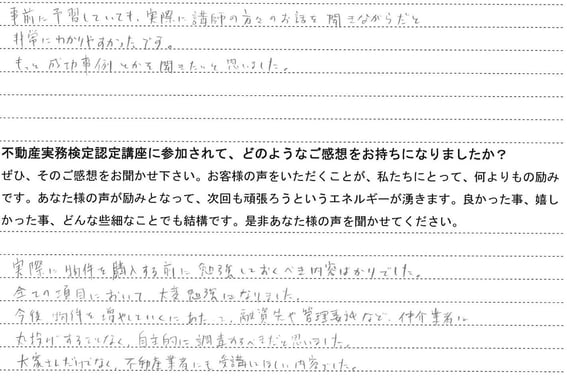 事前に予習していても、実際に講師の方々のお話を聞きながらだと
非常にわかりやすかったです。
もっと成功事例とかを聞きたいと思いました。
不動産実務検定認定講座に参加されて、どのようなご感想をお持ちになりましたか？
ぜひ、そのご感想をお聞かせ下さい。お客様の声をいただくことが、私たちにとって、何よりもの励み
です。あなた様の声が励みとなって、次回も頑張ろうというエネルギーが湧きます。良かった事、嬉し
かった事、どんな些細なことでも結構です。是非あなた様の声を聞かせてください。
実際に物件を購入する前に勉強しておくべき内容ばかりでした。
全ての項目において大変勉強になりました。
今後物件を増やしていくにあたって、融資先や管理会社など、仲介業者に
丸投げすることなく、自主的に調査するべきだと思いました。
大家さんだけでなく、不動産業者にも受講いてほしい内容でした。